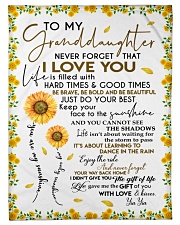 TO MY
Granddaughter
NEVER FORGET THAT
I LOVE YOU
Life is filled with
HARD TIMES & GOOD TIMES
BE BRAVE, BE BOLD AND BE BEAUTIFUL
JUST DO YOUR BEST
Keep your
face to the sunshine
AND YOU CANNOT SEE
THE SHADOWS
Life isn't about waiting for
the storm to pass
IT'S ABOUT LEARNING TO
DANCE IN THE RAIN
Enjoy the ride
And never forget
YOUR WAY BACK HOME
I DIDN'T GIVE YOU The gift of life
Life gave me the GIFT OF you
WITH LOVE &
You are my sunshine
my only sunshine